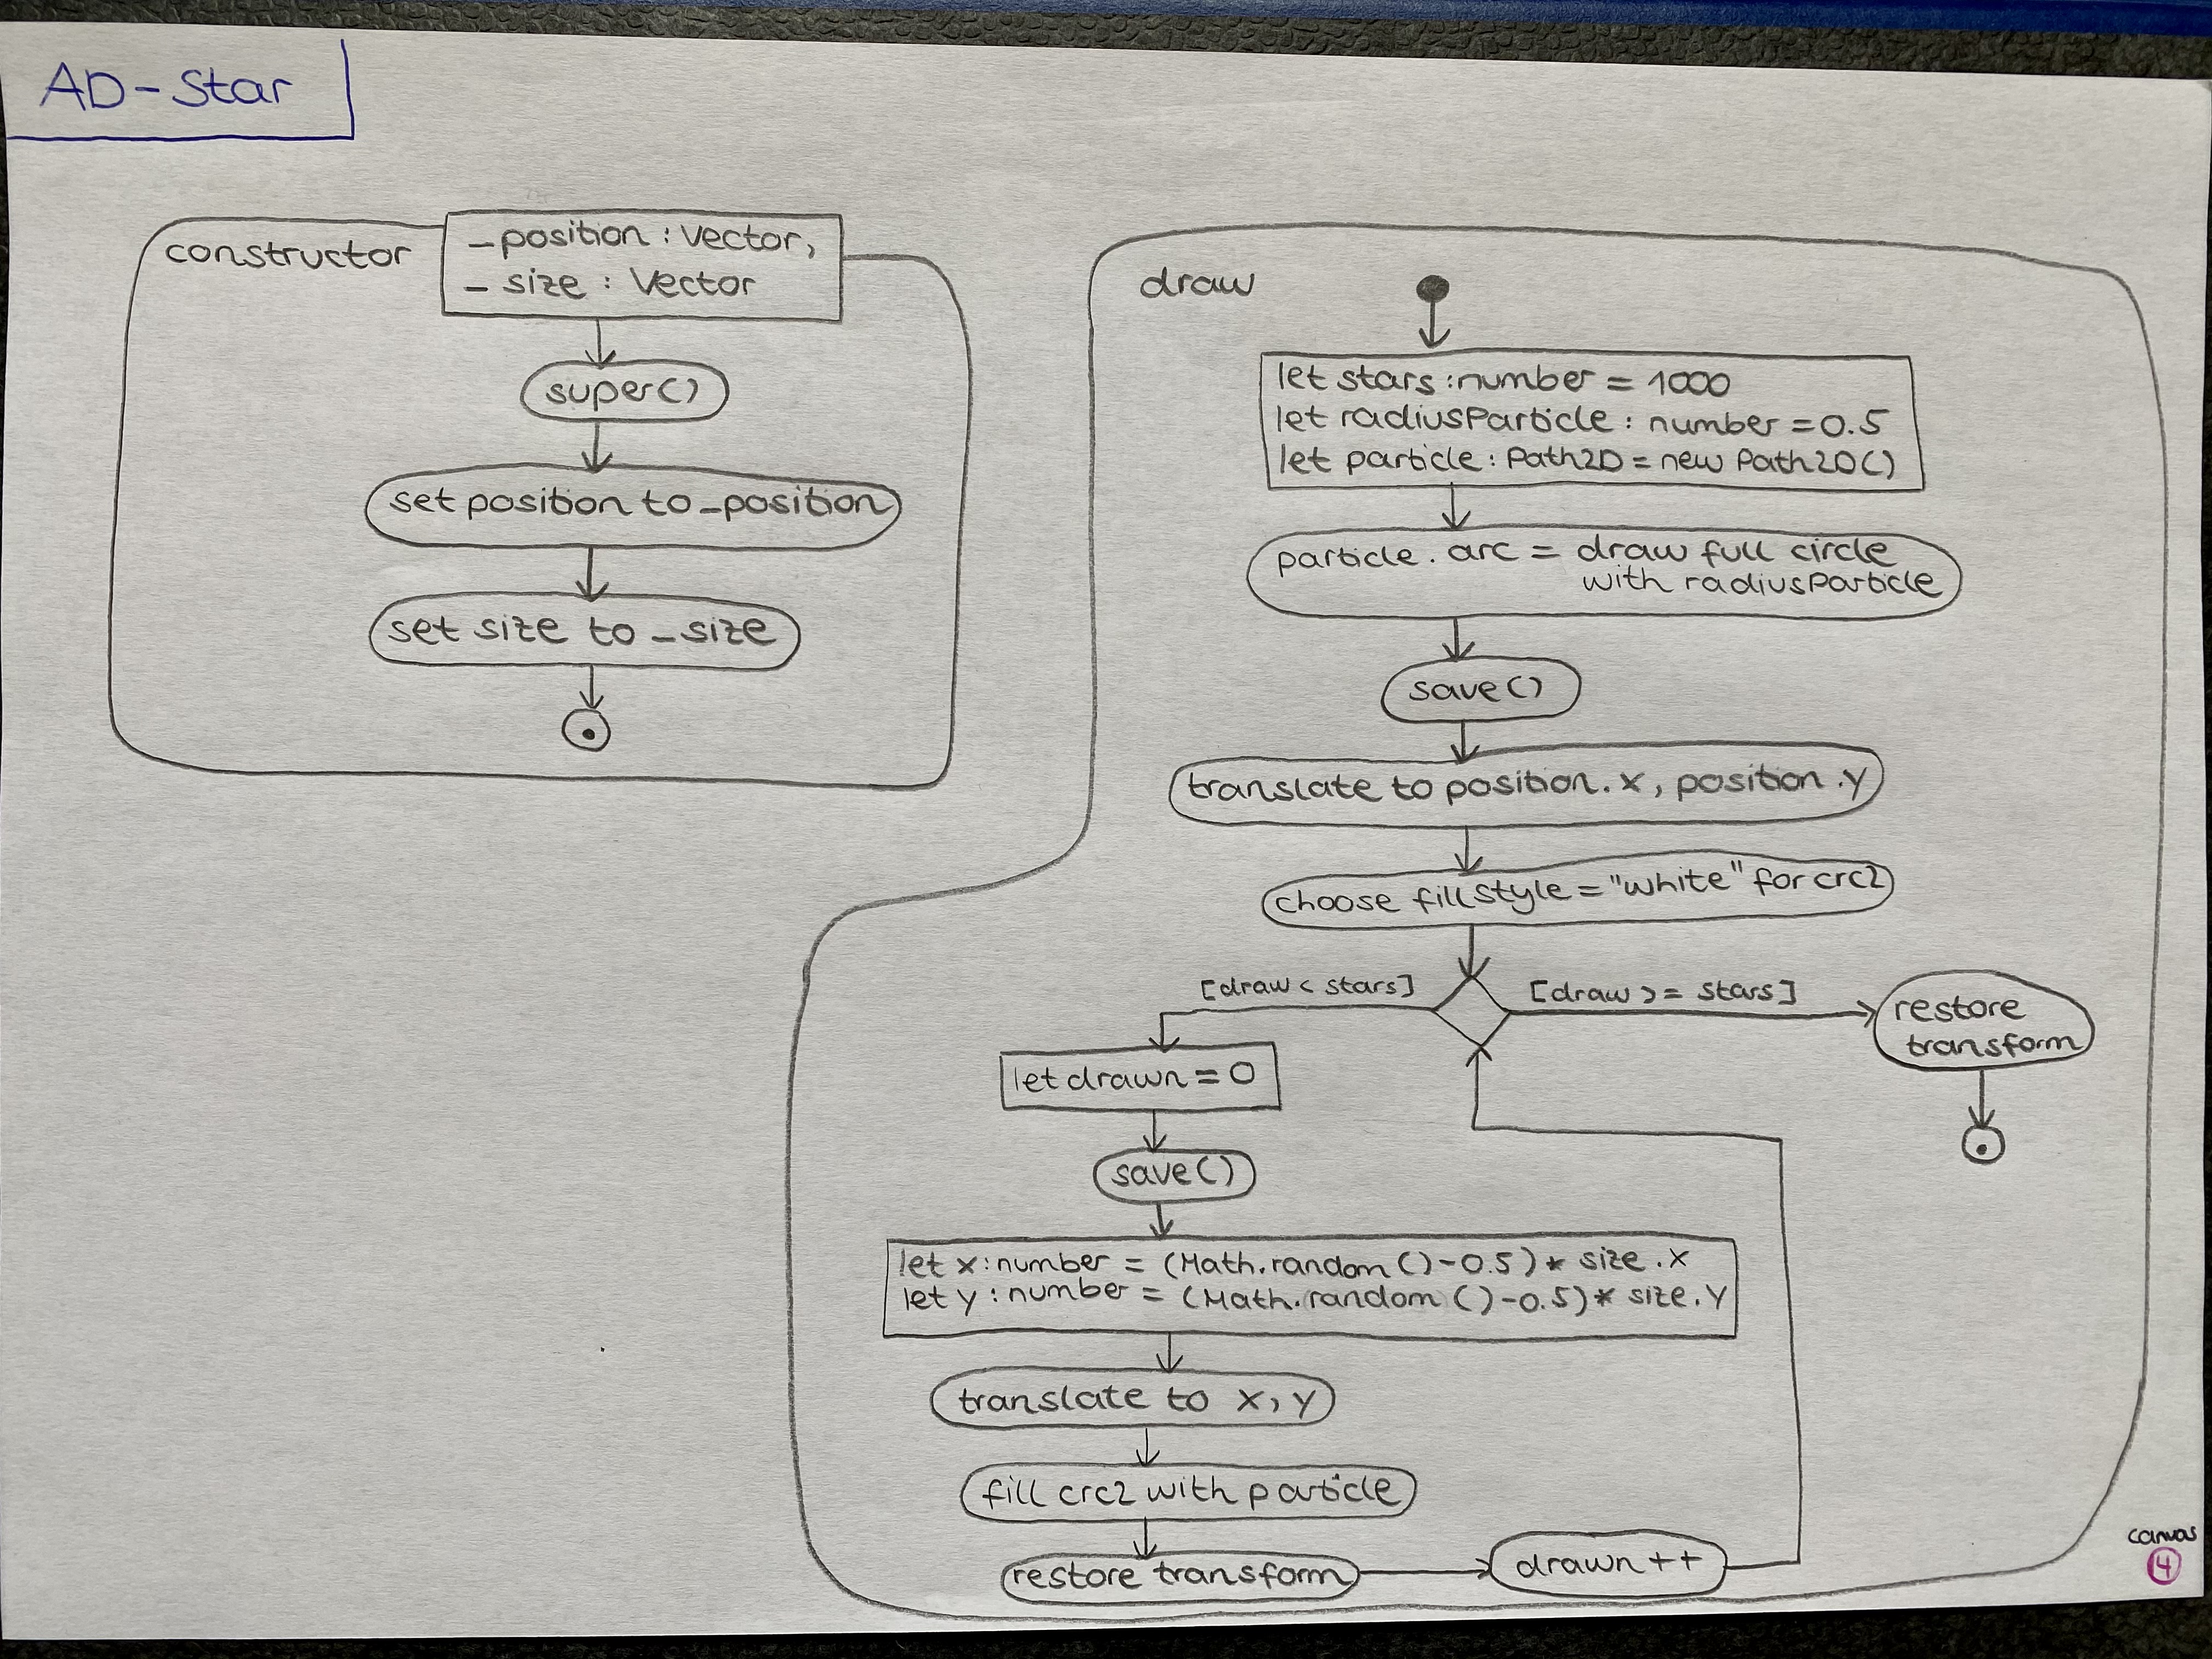 AD-Star
constructor
_position : Vector,
_ size : Vector
super()
set position to _position
set size to _size
draw
let stars : number = 1000
let radiusParticle : number = 0.5
let particle : Path2D = new Path2D()
particle. arc = draw full circle
with radiusParticle
save()
translate to position.x, position.y
choose fillStyle = "white" for crc2
[draw < stars]
[draw >= stars]
restore
transform
let drawn = 0
save()
let x : number = (Math.random() - 0.5) * size.x
let y : number = (Math.random() - 0.5) * size.y
translate to x, y
fill crc2 with particle
restore transform
drawn ++
canvas
4